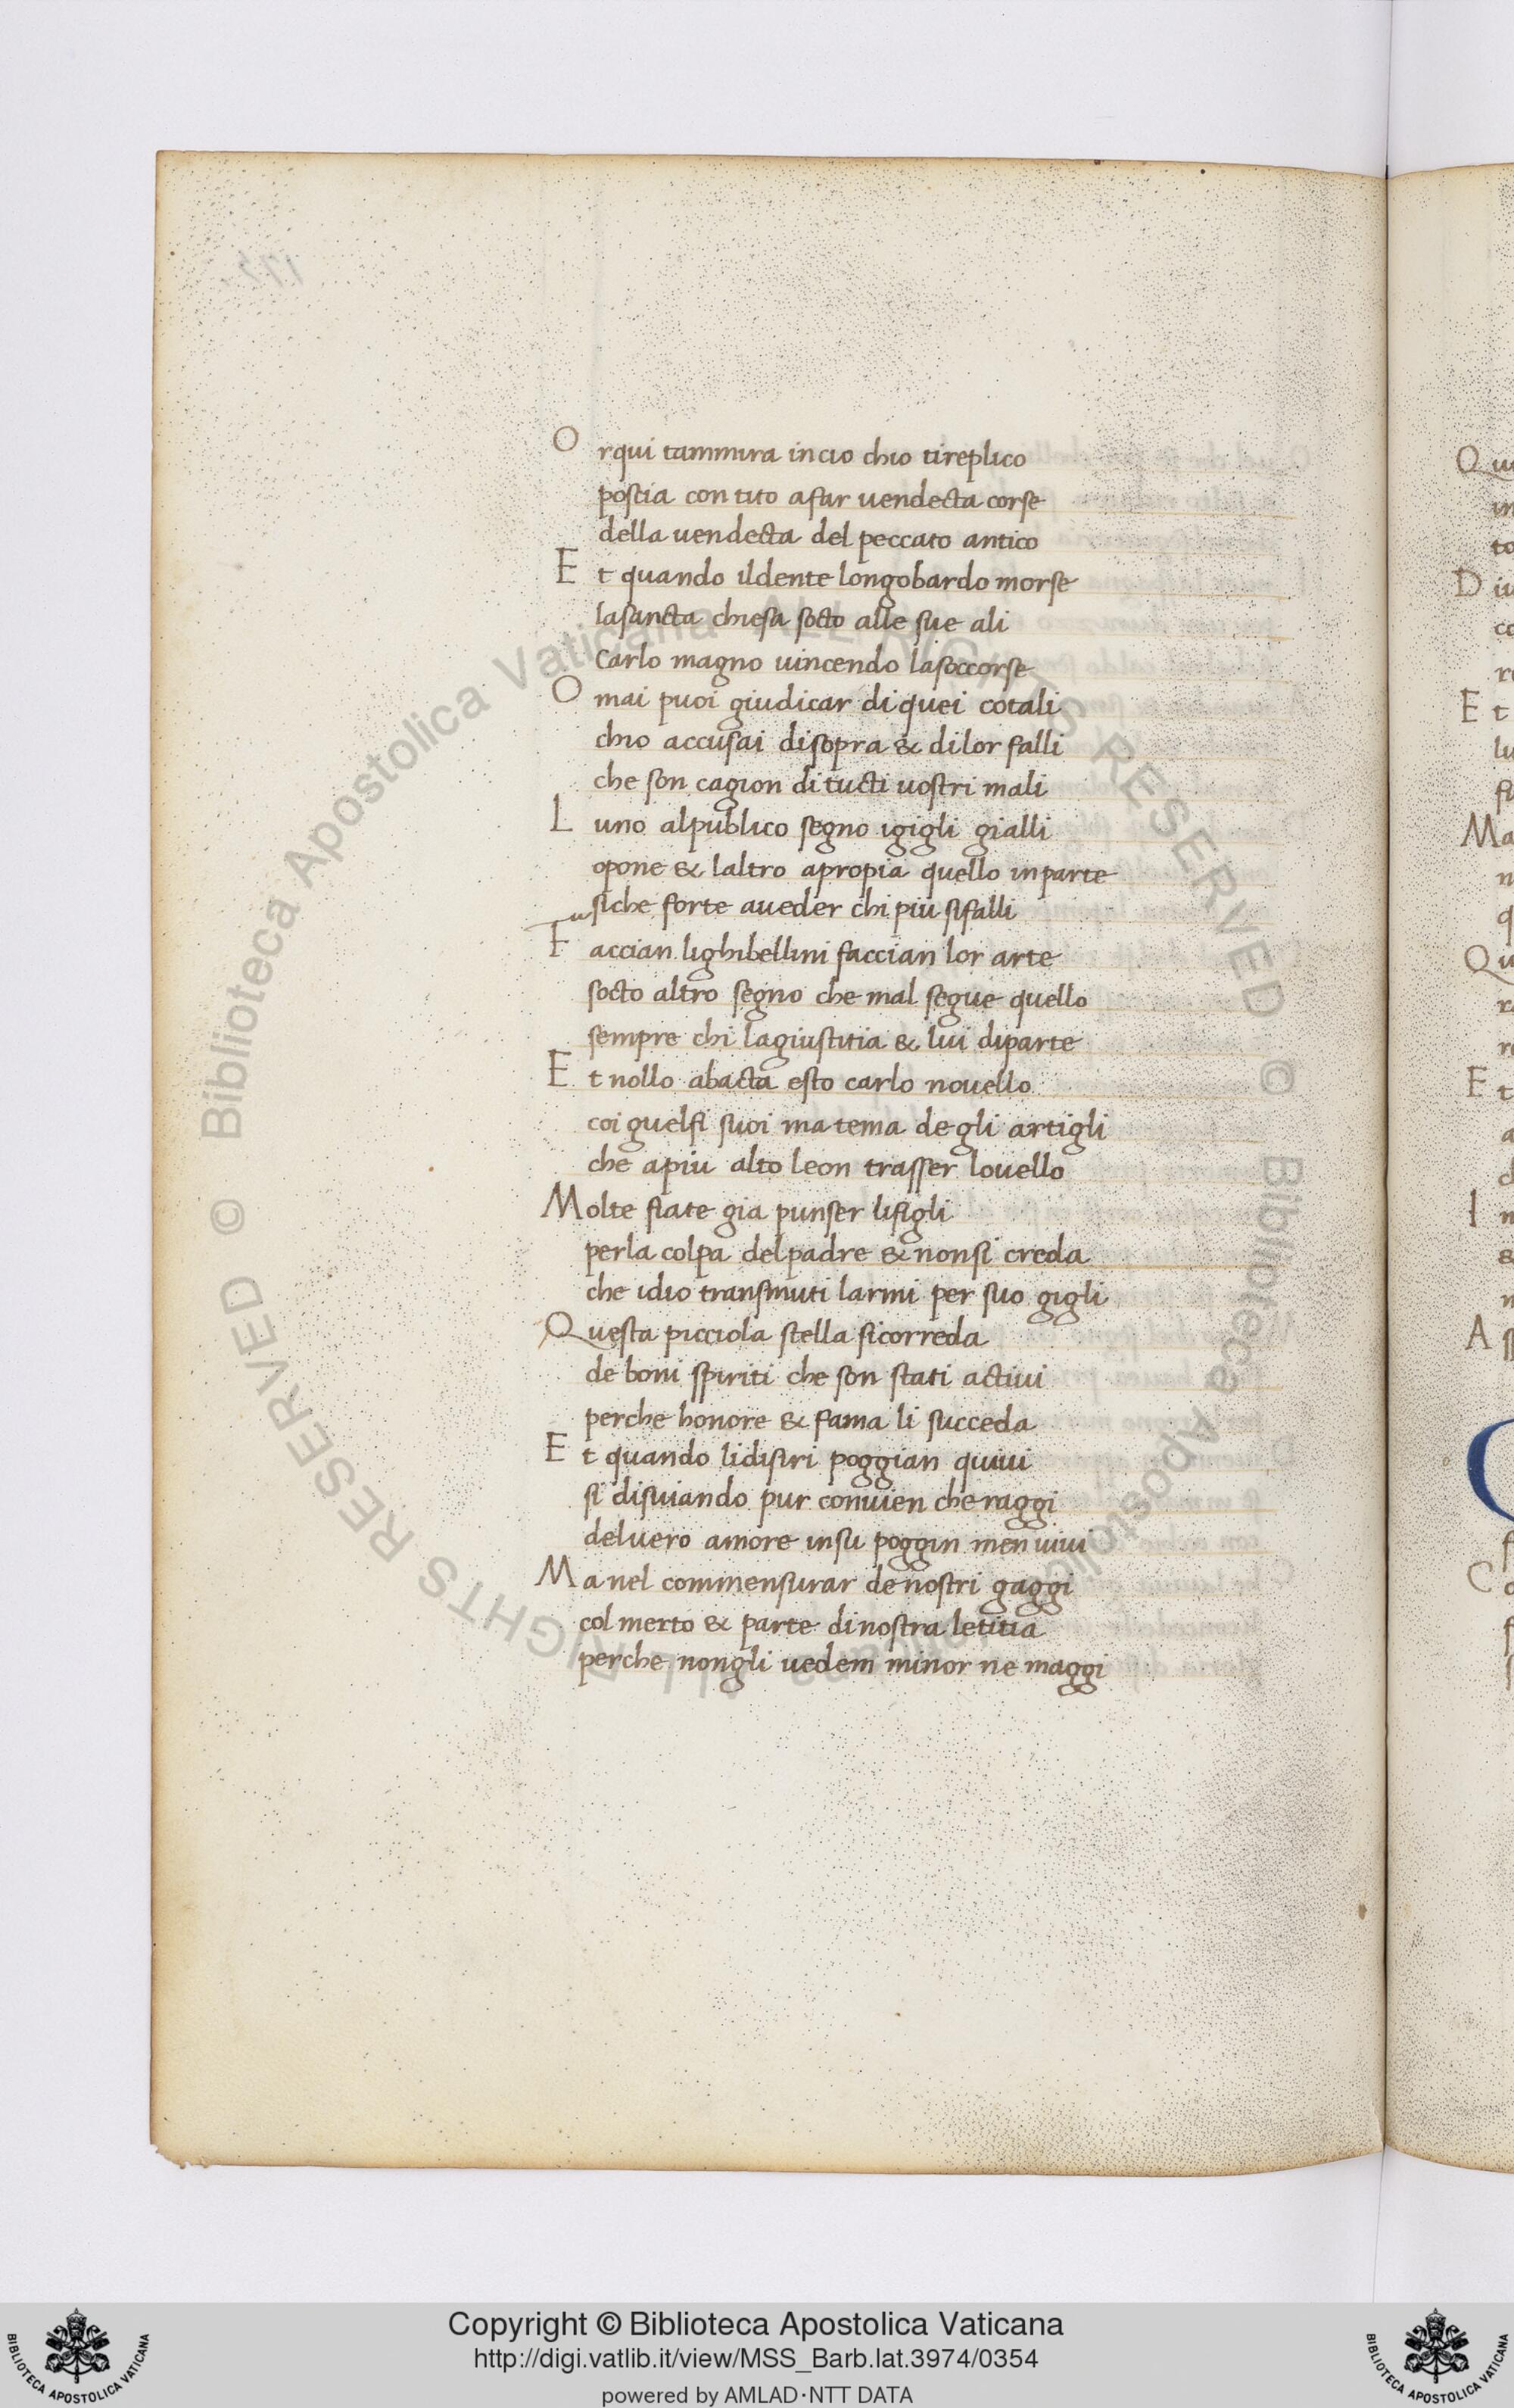 O rqui tammira incio chio tireplico
poscia con tito afar uendecta corse
della uendecta del peccato antico
E t quando ildente longobardo morse
lasancta chiesa socto alle sue ali
Carlo magno uincendo lasoccorse
O mai puoi giudicar di quei cotali
chio accusai disopra & dilor falli
che son cagion di tucti uostri mali
L uno alpublico segno igigli gialli
opone & laltro apropia quello inparte
siche forte aueder chi piu sifalli
F accian lighibellini faccian lor arte
socto altro segno che mal segue quello
sempre chi lagiustitia & lui diparte
E t nollo abacta esto carlo nouello
coi guelfi suoi ma tema de gli artigli
che apiu alto leon trasser louello
Molte fiate gia punser lifigli
perla colpa delpadre & nonsi creda
che idio transmuti larmi per suo gigli
Questa picciola stella sicorreda
de boni spiriti che son stati actiui
perche honore & fama li succeda
E t quando lidisiri poggian quiui
si disuiando pur conuien che raggi
deluero amore insu poggin men uiui
Ma nel commensurar denostri gaggi
col merto & parte dinostra letitia
perche nongli uedem minor ne maggi
© Biblioteca Apostolica Vaticana ALL RIGHTS RESERVED © Biblioteca Apostolica Vaticana ALL RIGHTS RESERVED
Copyright © Biblioteca Apostolica Vaticana
http://digi.vatlib.it/view/MSS_Barb.lat.3974/0354
powered by AMLAD·NTT DATA
BIBLIOTECA APOSTOLICA VATICANA
BIBLIOTECA APOSTOLICA VATICANA